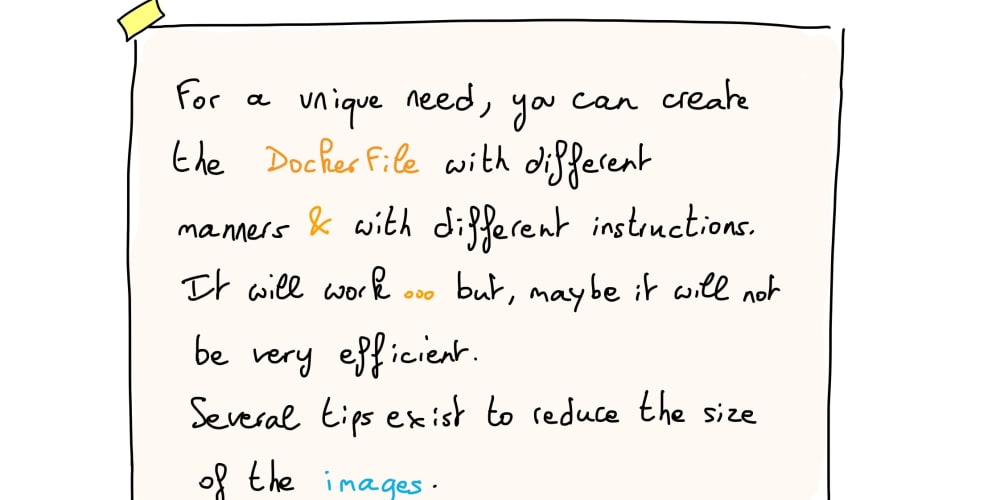 For a unique need, you can create
the DockerFile with different
manners & with different instructions.
It will work ... but, maybe it will not
be very efficient.
Several tips exist to reduce the size
of the images.